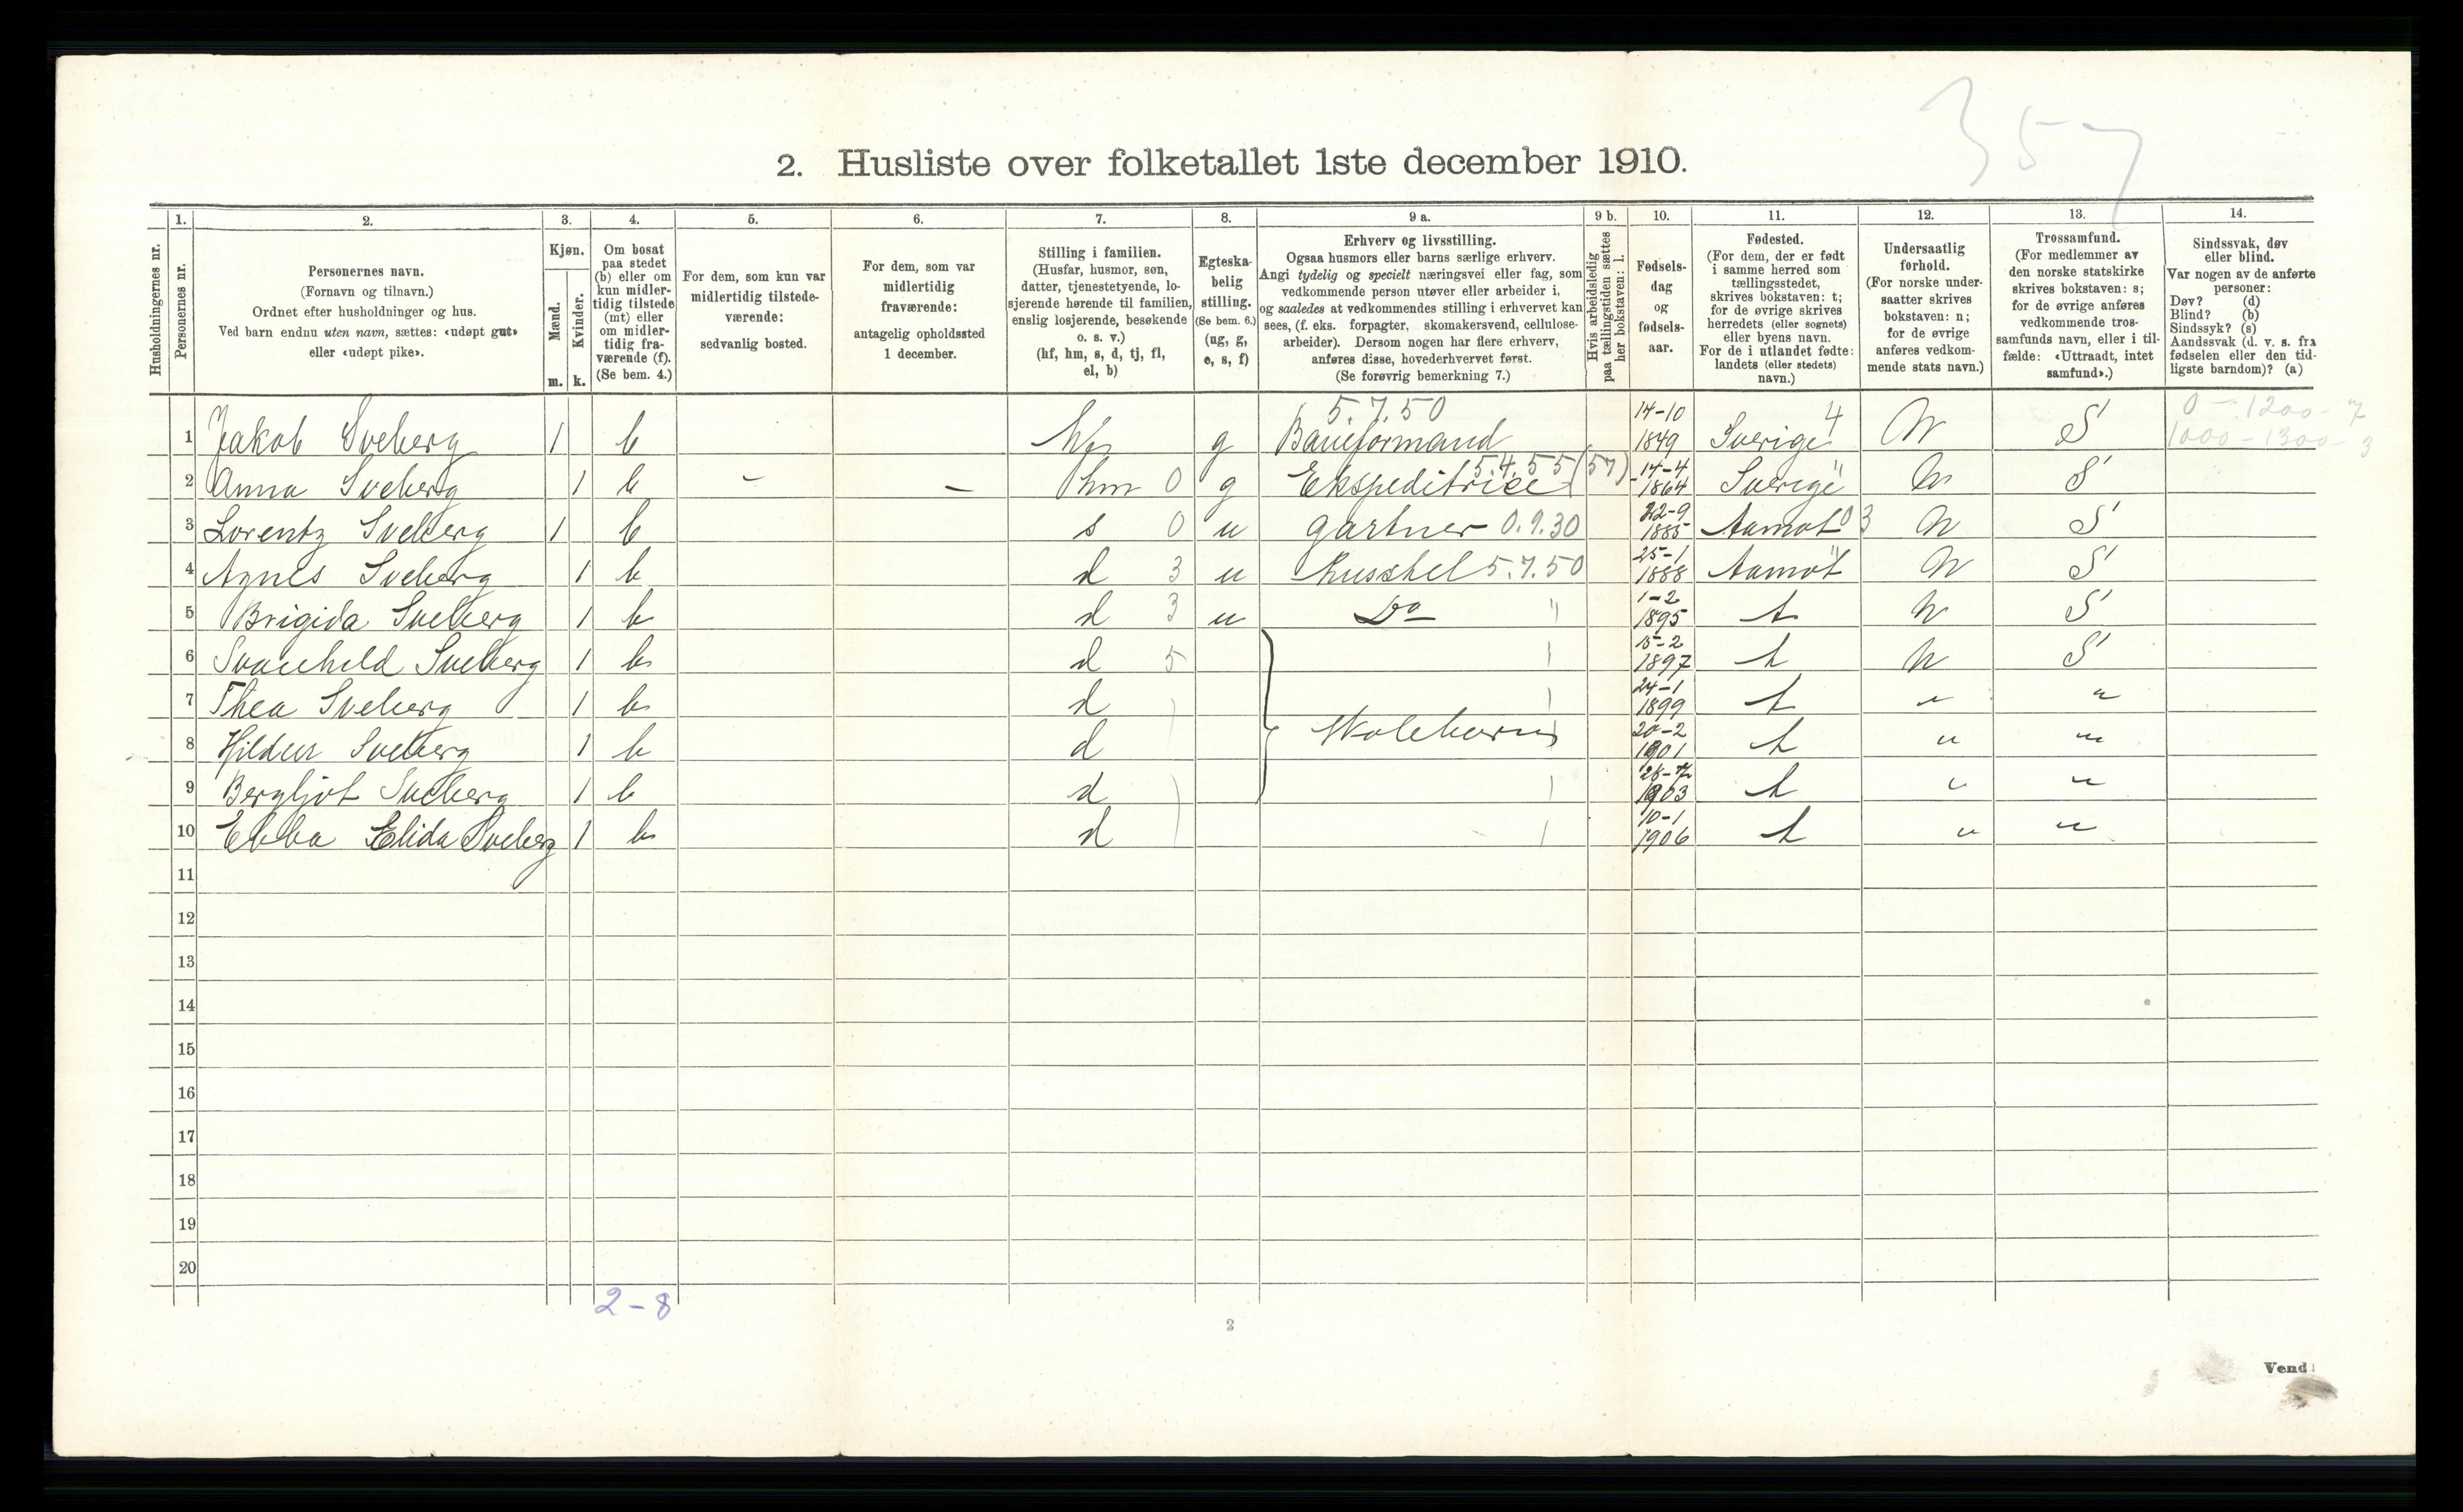 357
2. Husliste over folketallet 1ste december 1910.
Husholdningernes nr.
1. Personernes nr.
2. Personernes navn. (Fornavn og tilnavn.) Ordnet efter husholdninger og hus. Ved barn endnu uten navn, sættes: «udøpt gut» eller «udøpt pike».
3. Kjøn. Mænd. m. Kvinder. k.
4. Om bosat paa stedet (b) eller om kun midlertidig tilstede (mt) eller om midlertidig fraværende (f). (Se bem. 4.)
5. For dem, som kun var midlertidig tilstedeværende: sedvanlig bosted.
6. For dem, som var midlertidig fraværende: antagelig opholdssted 1 december.
7. Stilling i familien. (Husfar, husmor, søn, datter, tjenestetyende, losjerende hørende til familien, enslig losjerende, besøkende o. s. v.) (hf, hm, s, d, tj, fl, el, b)
8. Egteskabelig stilling. (Se bem. 6.) (ug, g, e, s, f)
9 a. Erhverv og livsstilling. Ogsaa husmors eller barns særlige erhverv. Angi tydelig og specielt næringsvei eller fag, som vedkommende person utøver eller arbeider i, og saaledes at vedkommendes stilling i erhvervet kan sees, (f. eks. forpagter, skomakersvend, cellulosearbeider). Dersom nogen har flere erhverv, anføres disse, hovederhvervet først. (Se forøvrig bemerkning 7.)
9 b. Hvis arbeidsledig paa tællingstiden sættes her bokstaven: l.
10. Fødselsdag og fødselsaar.
11. Fødested. (For dem, der er født i samme herred som tællingsstedet, skrives bokstaven: t; for de øvrige skrives herredets (eller sognets) eller byens navn. For de i utlandet fødte: landets (eller stedets) navn.)
12. Undersaatlig forhold. (For norske undersaatter skrives bokstaven: n; for de øvrige anføres vedkommende stats navn.)
13. Trossamfund. (For medlemmer av den norske statskirke skrives bokstaven: s; for de øvrige anføres vedkommende trossamfunds navn, eller i tilfælde: «Uttraadt, intet samfund».)
14. Sindssvak, døv eller blind. Var nogen av de anførte personer: Døv? (d) Blind? (b) Sindssyk? (s) Aandssvak (d. v. s. fra fødselen eller den tidligste barndom)? (a)
1 Jakob Sveberg 1 b hf g Baneformand 5.7.50 14-10 1849 Sverige 4 N S 0-1200-7 1000-1300-3
2 Anna Sveberg 1 b - - hm 0 g Ekspeditrice 5.4.55 (57) 14-4 1864 Sverige " N S
3 Lorentz Sveberg 1 b s 0 u Gartner 0.9.30 22-9 1885 Aamot 03 N S
4 Agnes Sveberg 1 b d 3 u 5.7.50 25-1 1888 Aamot " N S
5 Brigida Sveberg 1 b d 3 u Do " 1-2 1895 t N S
6 Svanhild Sveberg 1 b d 5 15-2 1897 t N S
7 Thea Sveberg 1 b d 24-1 1899 t " "
8 Hildur Sveberg 1 b d Skolebarn 20-2 1901 t " "
9 Bergljot Sveberg 1 b d 1903 t " "
10 Ebba Elida Sveberg 1 b d 10-1 1906 t " "
11
12
13
14
15
16
17
18
19
20
2-8
2
Vend!